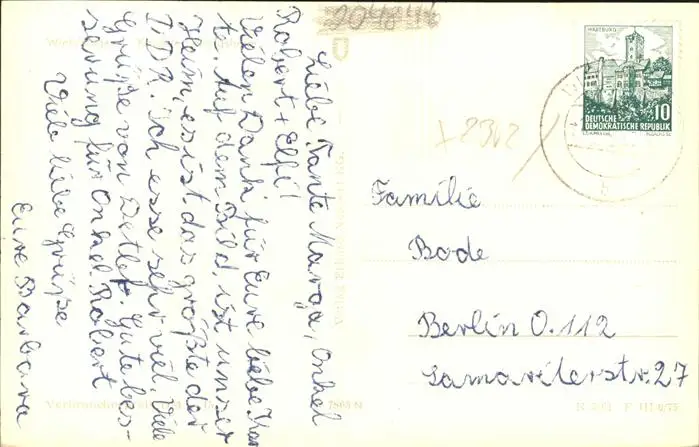 Liebe Tante Marga, Onkel
Robert + Elfi!
Vielen Dank für Eure liebe Kar
te. Auf dem Bild, ist unser
Heim, es ist das größte der
DDR. Ich esse sehr viel. Viele
Grüße von Detlef. Gute bes-
serung für Onkel Robert
Viele liebe Grüße
Eure Barbara
WARTBURG
10
DEUTSCHE
DEMOKRATISCHE REPUBLIK
2362
Familie
Bode
Berlin O. 112
Samariterstr. 27